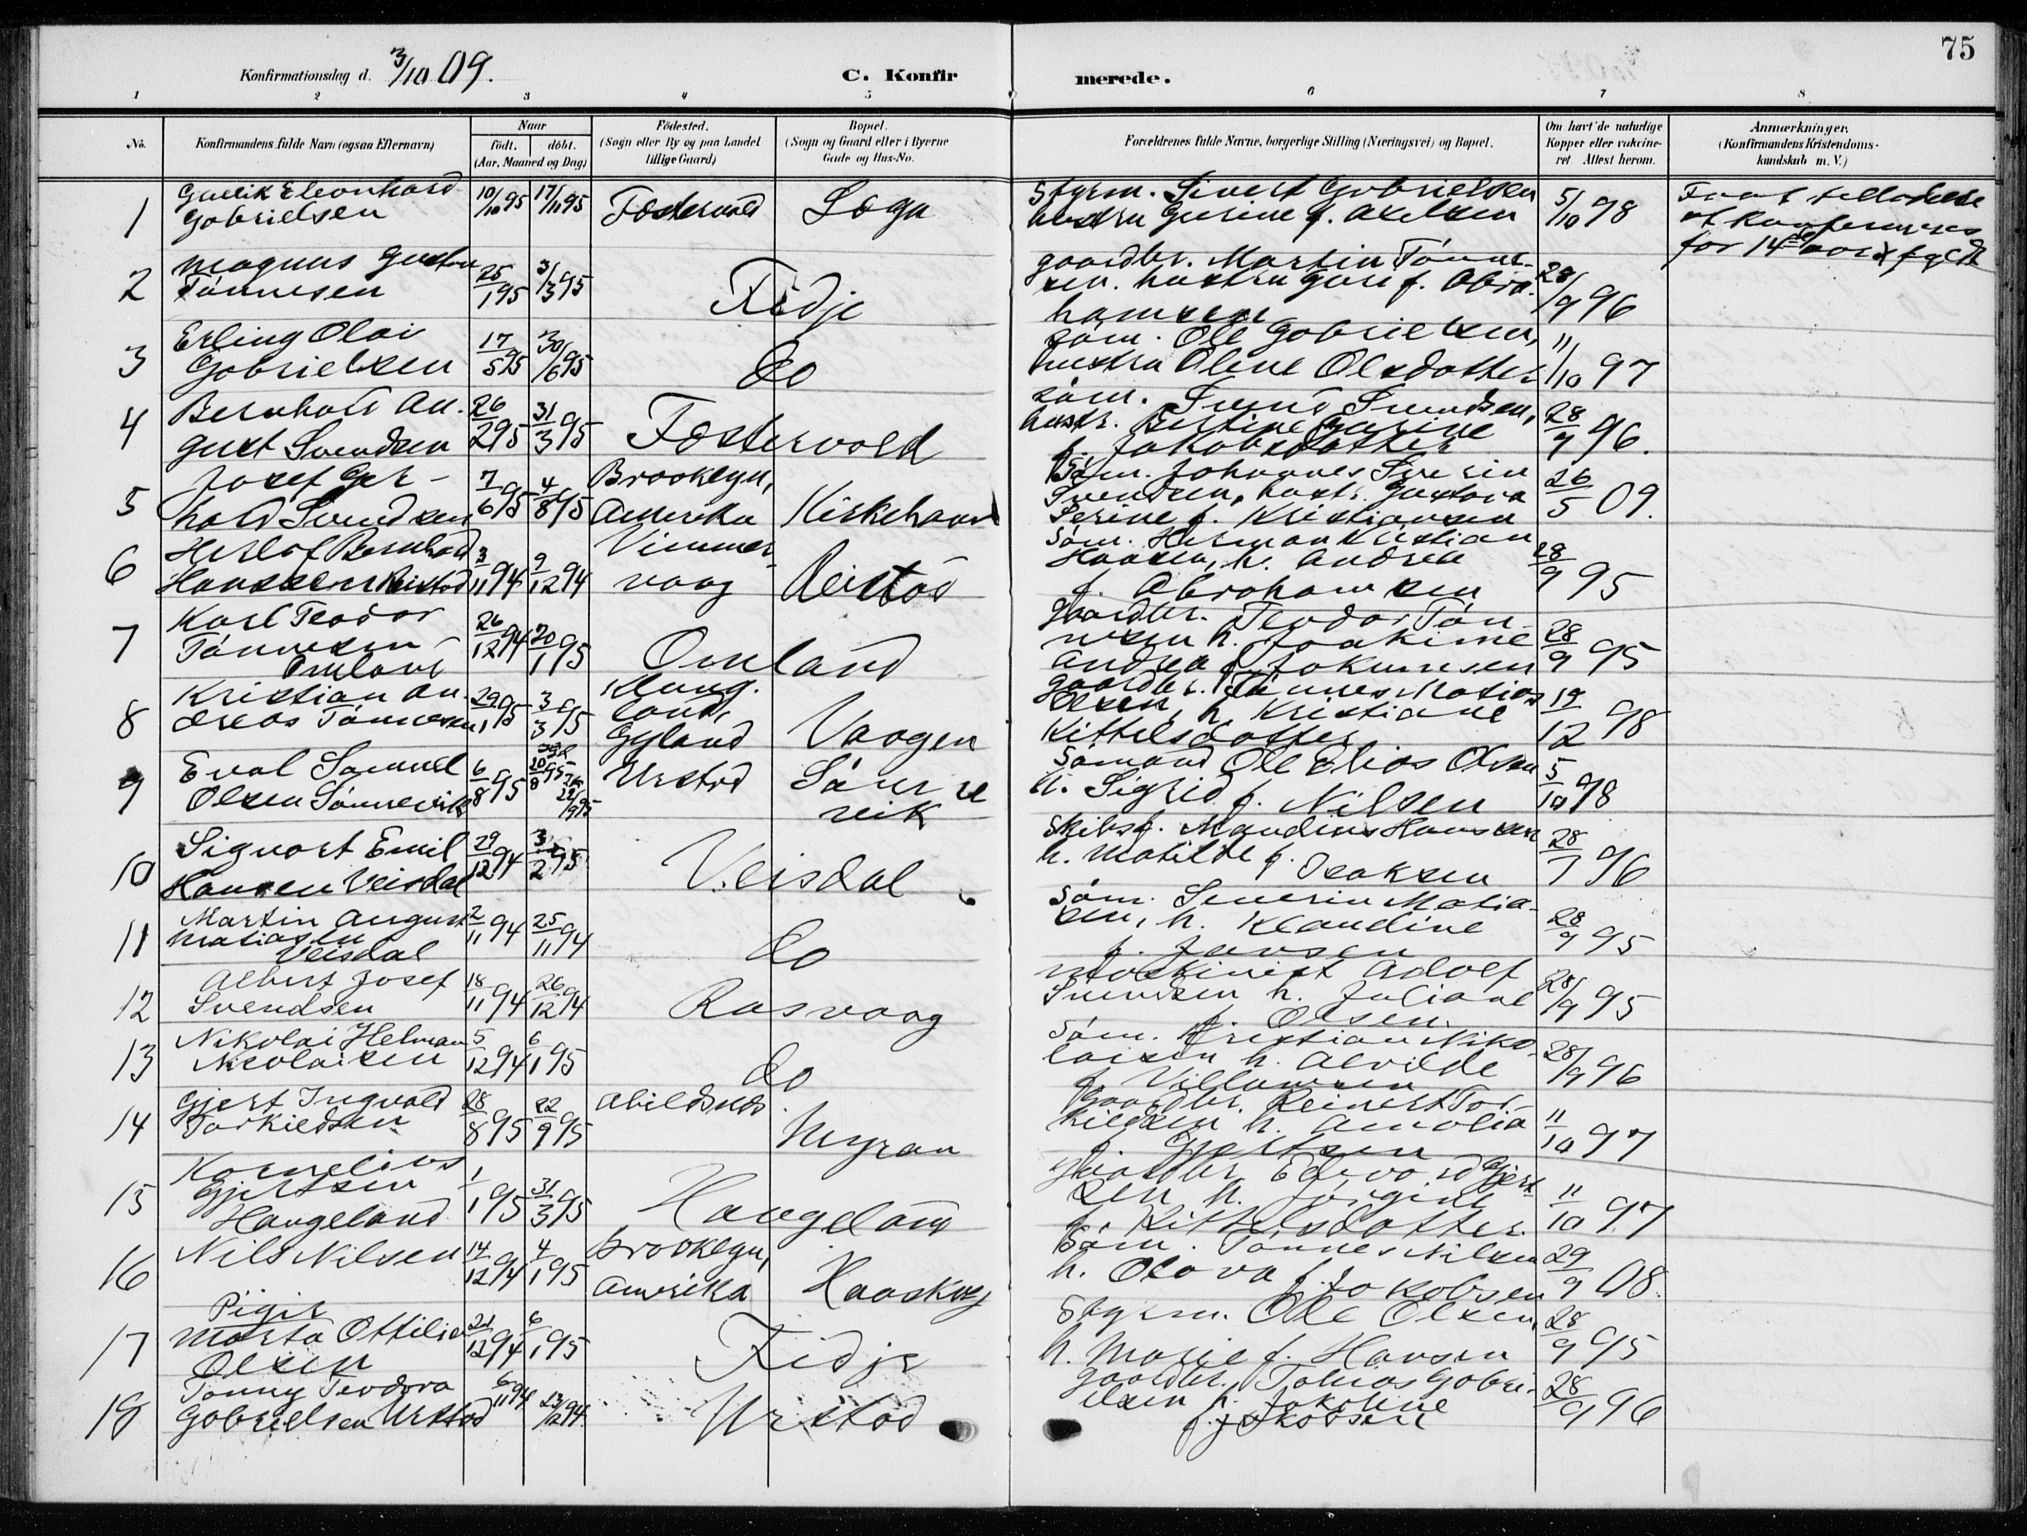 75
Konfirmationsdag d. 3/10 09.
C. Konfirmerede.
1 2 3 4 5 6 7 8
No.
Konfirmandens fulde Navn (ogsaa Efternavn)
Naar
født. døbt.
(Aar, Maaned og Dag)
Fødested.
(Sogn eller By og paa Landet
tillige Gaard)
Bopæl.
(Sogn og Gaard eller i Byerne
Gade og Hus-No.
Forældrenes fulde Navne, borgerlige Stilling (Næringsvei) og Bopæl.
Om havt'de naturlige
Kopper eller vakcine-
ret Attest herom.
Anmærkninger.
(Konfirmandens Kristendoms-
kundskab m. V.)
1 Gullik Eleonhard
Gabrielsen
10/10 95 17/11 95 Fostervold Loga
Styrm. Sivert Gabrielsen
hustru Gurine f. Axelsen
5/10 98
Faat tilladelse
at konfirmeres
før 14 aar
2 Magnus Gustav
Tønnesen
25/1 95 3/3 95 Fidje
gaardbr. Martin Tønne-
sen. hustru Gure f. Abra-
hamsen
28/9 96
3 Erling Olai
Gabrielsen
17/5 95 30/6 95 do
søm. Ole Gabrielsen,
hustru Oline Olsdotter
11/10 97
4 Bernhard Au-
gust Svendsen
26/2 95 31/3 95 Fostervold
søm. Svend Svendsen,
hustr. Bertine Gurine
f. Jakobsdotter
28/9 96.
5 Josef Ger-
hald Svendsen
7/6 95 4/8 95 Brooklyn,
Amerika Kirkehavn
Søm. Johannes Severin
Svendsen, hustr. Gustava
Serine f. Kristiansen
26/5 09.
6 Herlof Bernhard
Hanssen Reistad
3/11 94 9/12 94 Vimmer-
vaag Reistad
Søm. Herman Kristian
Hansen, h. Andrea
f. Abrahamsen
28/9 95
7 Karl Teodor
Tønnesen
Omland
26/12 94 20/1 95 Omland
Gaardbr. Teodor Tøn-
nesen h. Joakime
Andrea f. Jokumsen
28/9 95
8 Kristian An-
dreas Tønnessen
29/1 95 3/3 95
land,
Gyland Vaagen
gaardbr. Tønnes Matias
Olsen, h. Kristiane
Kittelsdotter
19/12 98
9 Eval Samuel
Olsen Sønnevik
6/8 95 Urstad Sønne
vik
Sømand Ole Elias Olsen
h. Sigrid f. Nilsen
5/10 98
10 Sigvart Emil
Hansen Veisdal
29/12 94 3/2 95 Veisdal
Skibsf. Maudius Hanssen
h. Matilde f.
Isaksen
28/7 96
11 Martin August
Matiasen
Veisdal
2/11 94 25/11 94 do
Søm. Severin Matia-
sen, h. Klaudine
f. Jansen
28/9 95
12 Albert Josef
Svendsen
18/11 94 26/12 94 Rasvaag
Maskinist Adolf
Svendsen h. Juliane
f. Olsen.
28/9 95
13 Nikolai Helman
Nicolaisen
5/12 94 6/1 95 do
Søm. Kristian Niko-
laisen h. Alvilde
f. Villumsen
28/9 96
14 Gjert Ingvald
Torkildsen
28/8 95 22/9 95 Abildsnes. Myran
Gaardbr. Reinert Tor-
kildsen h. Amalia
f. Gjertsen
11/10 97
15 Kornelius
Gjertsen
Haugeland
1/1 95 31/3 95 Haugeland
gaardbr. Edevard Gjert-
sen h. Jørgine
f. Kittelsdotter.
11/10 97
16 Nils Nilsen
14/12 94 4/1 95 Brooklyn,
Amerika Haaskog
Søm. Tønnes Nilsen
h. Olava f. Jakobsen
29/9 08.
Piger
17 Marta Ottilie
Olsen
21/12 94 6/1 95 Fidje
Styrm. Ole Olsen,
h. Marie f. Hansen
28/9 95
18 Tonny Teodora
Gabrielsen Urstad
6/11 94 13/12 94. Urstad
gaardbr. Tobias Gabri-
elsen h. Jakobine
f. Jakobsen
28/9 96